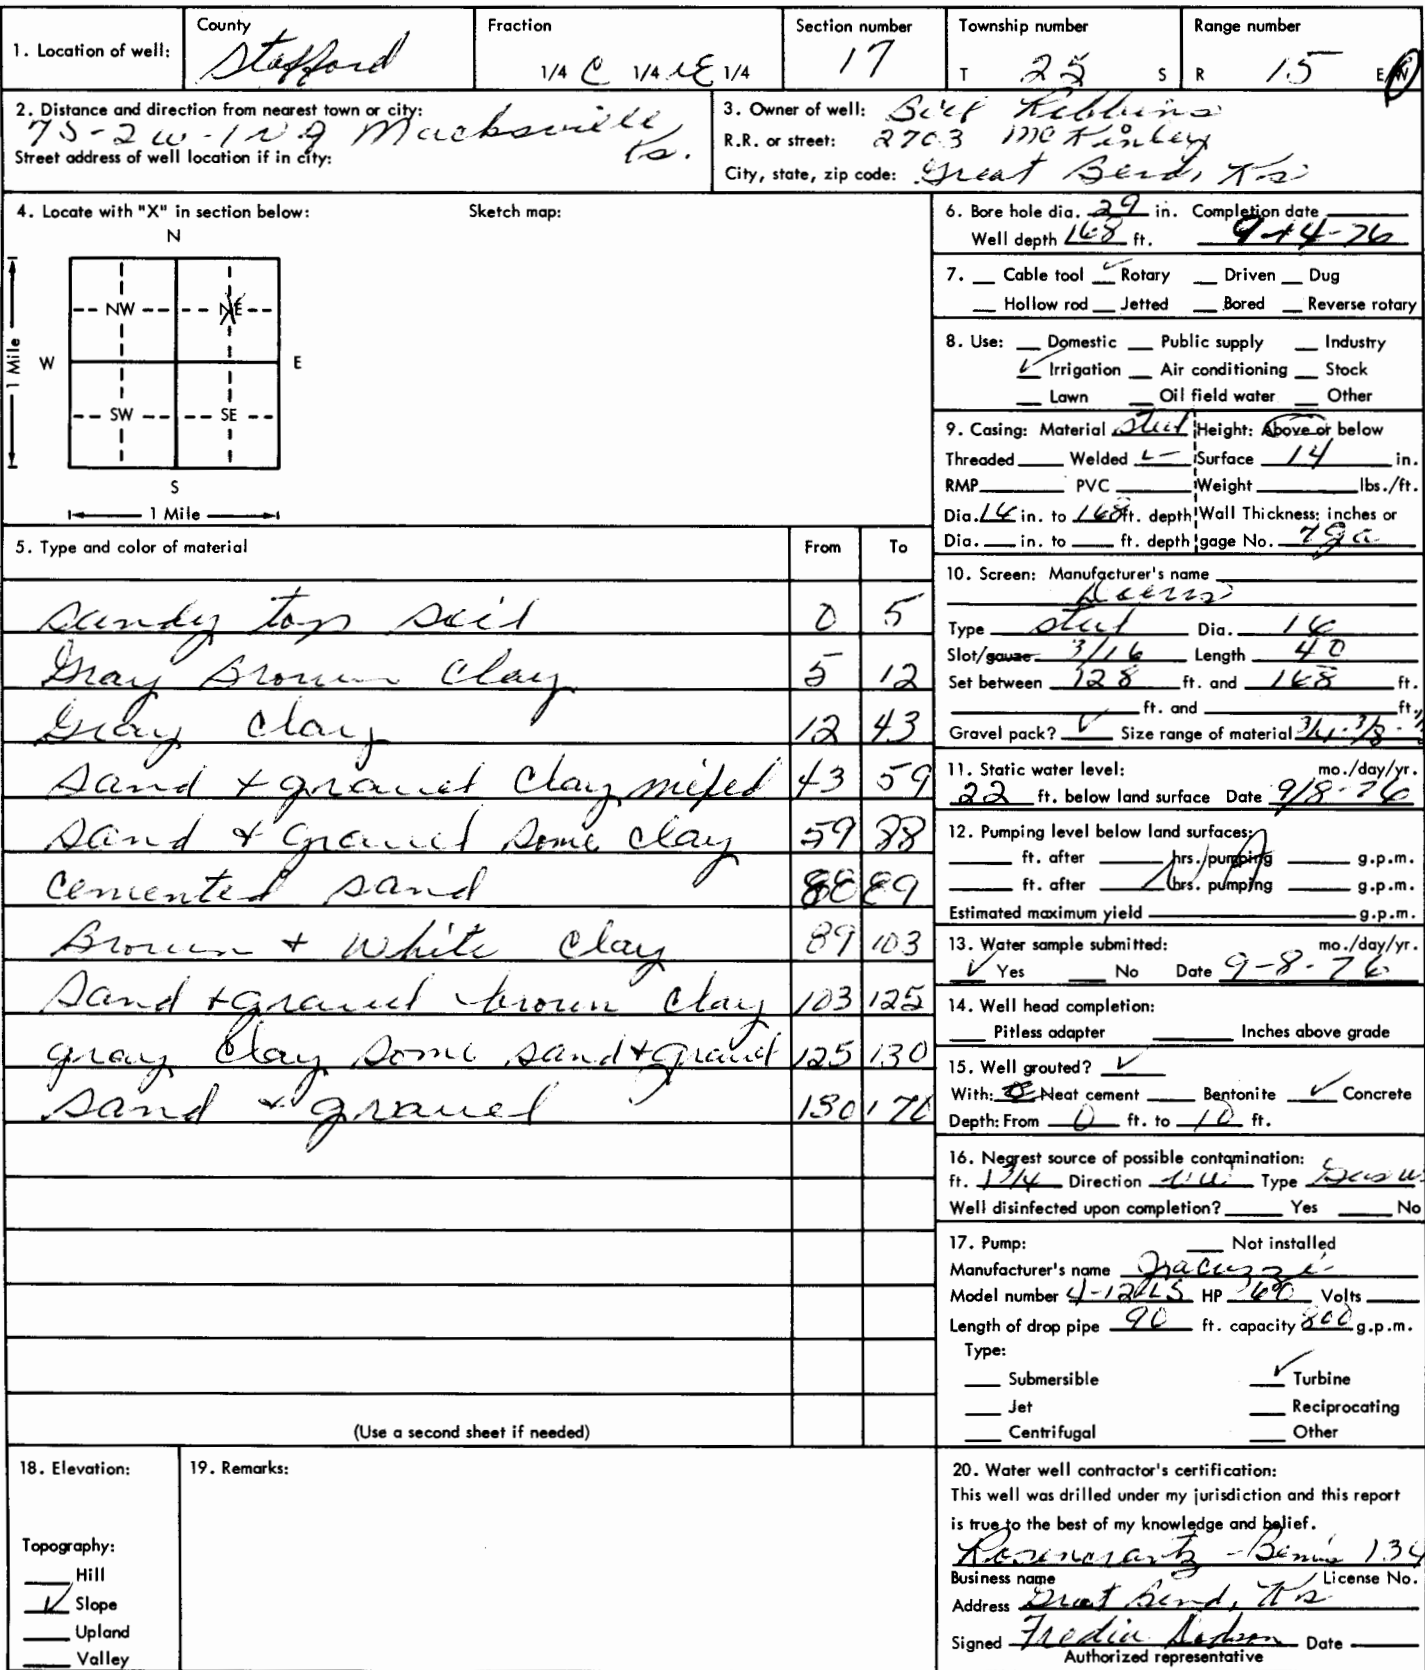 County Fraction Section number Township number Range number
1. Location of well: Stafford 1/4 C 1/4 NE 1/4 17 T 25 S R 15 E W
2. Distance and direction from nearest town or city: 3. Owner of well: Bill
7S-2W-1N of Macksville, Ks. R.R. or street: 2703 McKinley
Street address of well location if in city:
City, state, zip code: Great Bend, Ks
4. Locate with "X" in section below: Sketch map:
N
NW NE
W E
SW SE
S
1 Mile
1 Mile
5. Type and color of material From To
sandy top soil 0 5
Gray Brown Clay 5 12
Gray Clay 12 43
sand + gravel clay mixed 43 59
sand + gravel some clay 59 88
cemented sand 88 89
Brown + White Clay 89 103
sand + gravel brown clay 103 125
gray clay some sand + gravel 125 130
sand + gravel 130 170
(Use a second sheet if needed)
6. Bore hole dia. 29 in. Completion date
Well depth 168 ft. 9-14-76
7. Cable tool ✓ Rotary Driven Dug
Hollow rod Jetted Bored Reverse rotary
8. Use: Domestic Public supply Industry
✓ Irrigation Air conditioning Stock
Lawn Oil field water Other
9. Casing: Material steel Height: Above or below
Threaded Welded ✓ Surface 14 in.
RMP PVC Weight lbs./ft.
Dia. 16 in. to 168 ft. depth Wall Thickness: inches or
Dia. in. to ft. depth gage No. 7 ga
10. Screen: Manufacturer's name
Type steel Dia. 16
Slot/gauze 3/16 Length 40
Set between 128 ft. and 168 ft.
ft. and ft.
Gravel pack? ✓ Size range of material 3/4-3/8-
11. Static water level: mo./day/yr.
22 ft. below land surface Date 9/8-76
12. Pumping level below land surfaces:
ft. after hrs. pumping g.p.m.
ft. after hrs. pumping g.p.m.
Estimated maximum yield g.p.m.
13. Water sample submitted: mo./day/yr.
✓ Yes No Date 9-8-76
14. Well head completion:
Pitless adapter Inches above grade
15. Well grouted? ✓
With: Neat cement Bentonite ✓ Concrete
Depth: From 0 ft. to 10 ft.
16. Nearest source of possible contamination:
ft. Direction Type
Well disinfected upon completion? Yes No
17. Pump: Not installed
Manufacturer's name Jacuzzi
Model number HP 60 Volts
Length of drop pipe 90 ft. capacity 800 g.p.m.
Type:
Submersible ✓ Turbine
Jet Reciprocating
Centrifugal Other
18. Elevation:
Topography:
Hill
✓ Slope
Upland
Valley
19. Remarks:
20. Water well contractor's certification:
This well was drilled under my jurisdiction and this report
is true to the best of my knowledge and belief.
Rosencrantz-Bemis 134
Business name License No.
Address Great Bend, Ks
Signed Date
Authorized representative